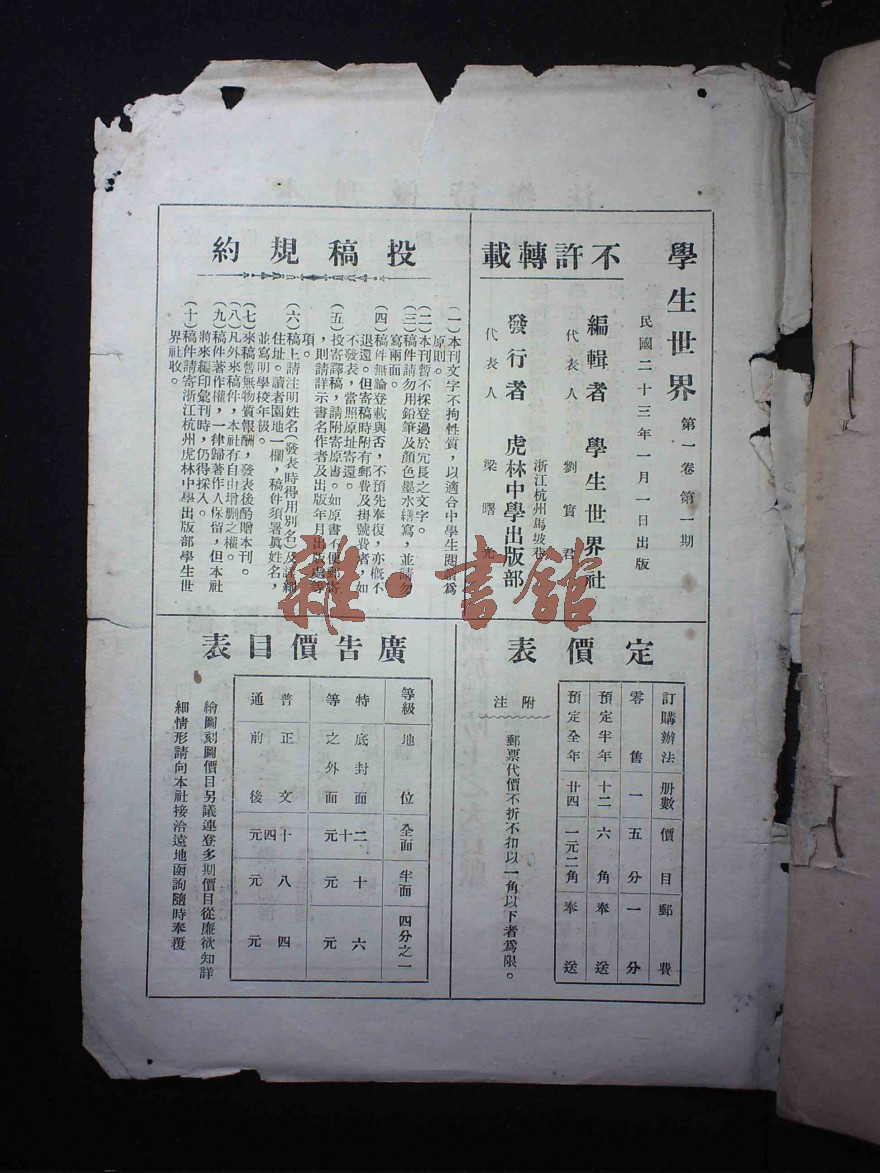 學生世界 第一卷 第一期
民國二十三年一月一日出版
不許轉載
編輯者 學生世界社
代表人 劉實君
浙江杭州馬坡巷
發行者 虎林中學出版部
代表人 梁曙光
投稿規約
(一)本刊文字不拘性質，以適合中學生閱讀爲
原則。
(二)本刊暫不採登過於冗長之文字。
(三)稿件請勿用鉛筆及顏色墨水繕寫，並請勿
寫兩面。
(四)稿件無論登載與否，不預先奉復，亦概不
退還。但寄稿時附有郵費及掛號費者，如
不發表，當照原址寄還。
(五)投寄譯稿，請附寄原書。如原書不便郵寄
，則請詳示書名作者及出版年月出版處等
項。
(六)稿上請注明姓名(發表時得用別名)及詳細
住址。讀者園地一欄，稿件須署眞姓名，
並寫明學校年級。
(七)來稿暫無物質報酬，發表後酌贈本刊。
(八)凡外來稿件，本社有自由增刪之權。
(九)稿件著作權，一律歸著作人保留，但本社
將來編印彙刊時，仍得採入。
(十)稿件請寄浙江杭州虎林中學出版部學生世
界社收。
定價表
訂購辦法 册數 價目 郵費
零售 一 五分 一分
預定半年 十二 六角 奉送
預定全年 廿四 一元二角 奉送
附注
郵票代價不折不扣以一角以下者爲限。
廣告價目表
等級 地位 全面 半面 四分之一
特等 底封面之外面 二十元 十元 六元
普通 正文前後 十四元 八元 四元
繪圖刻圖價目另議連登多期價目從廉欲知詳
細情形請向本社接洽遠地函詢隨時奉覆
雜·書館